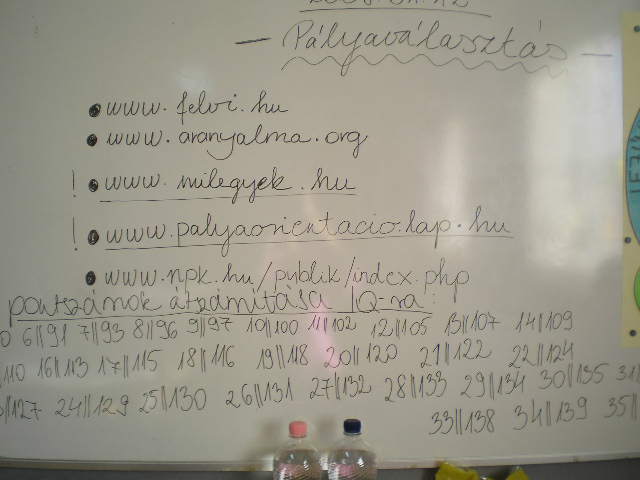 — Pályaválasztás —
• www.felvi.hu
• www.aranyalma.org
! • www.milegyek.hu
! • www.palyaorientacio.lap.hu
• www.npk.hu/publik/index.php
pontszámok átszámítása IQ-ra:
6||91 7||93 8||96 9||97 10||100 11||102 12||105 13||107 14||109
16||113 17||115 18||116 19||118 20||120 21||122 22||124
24||129 25||130 26||131 27||132 28||133 29||134 30||135
33||138 34||139 35||